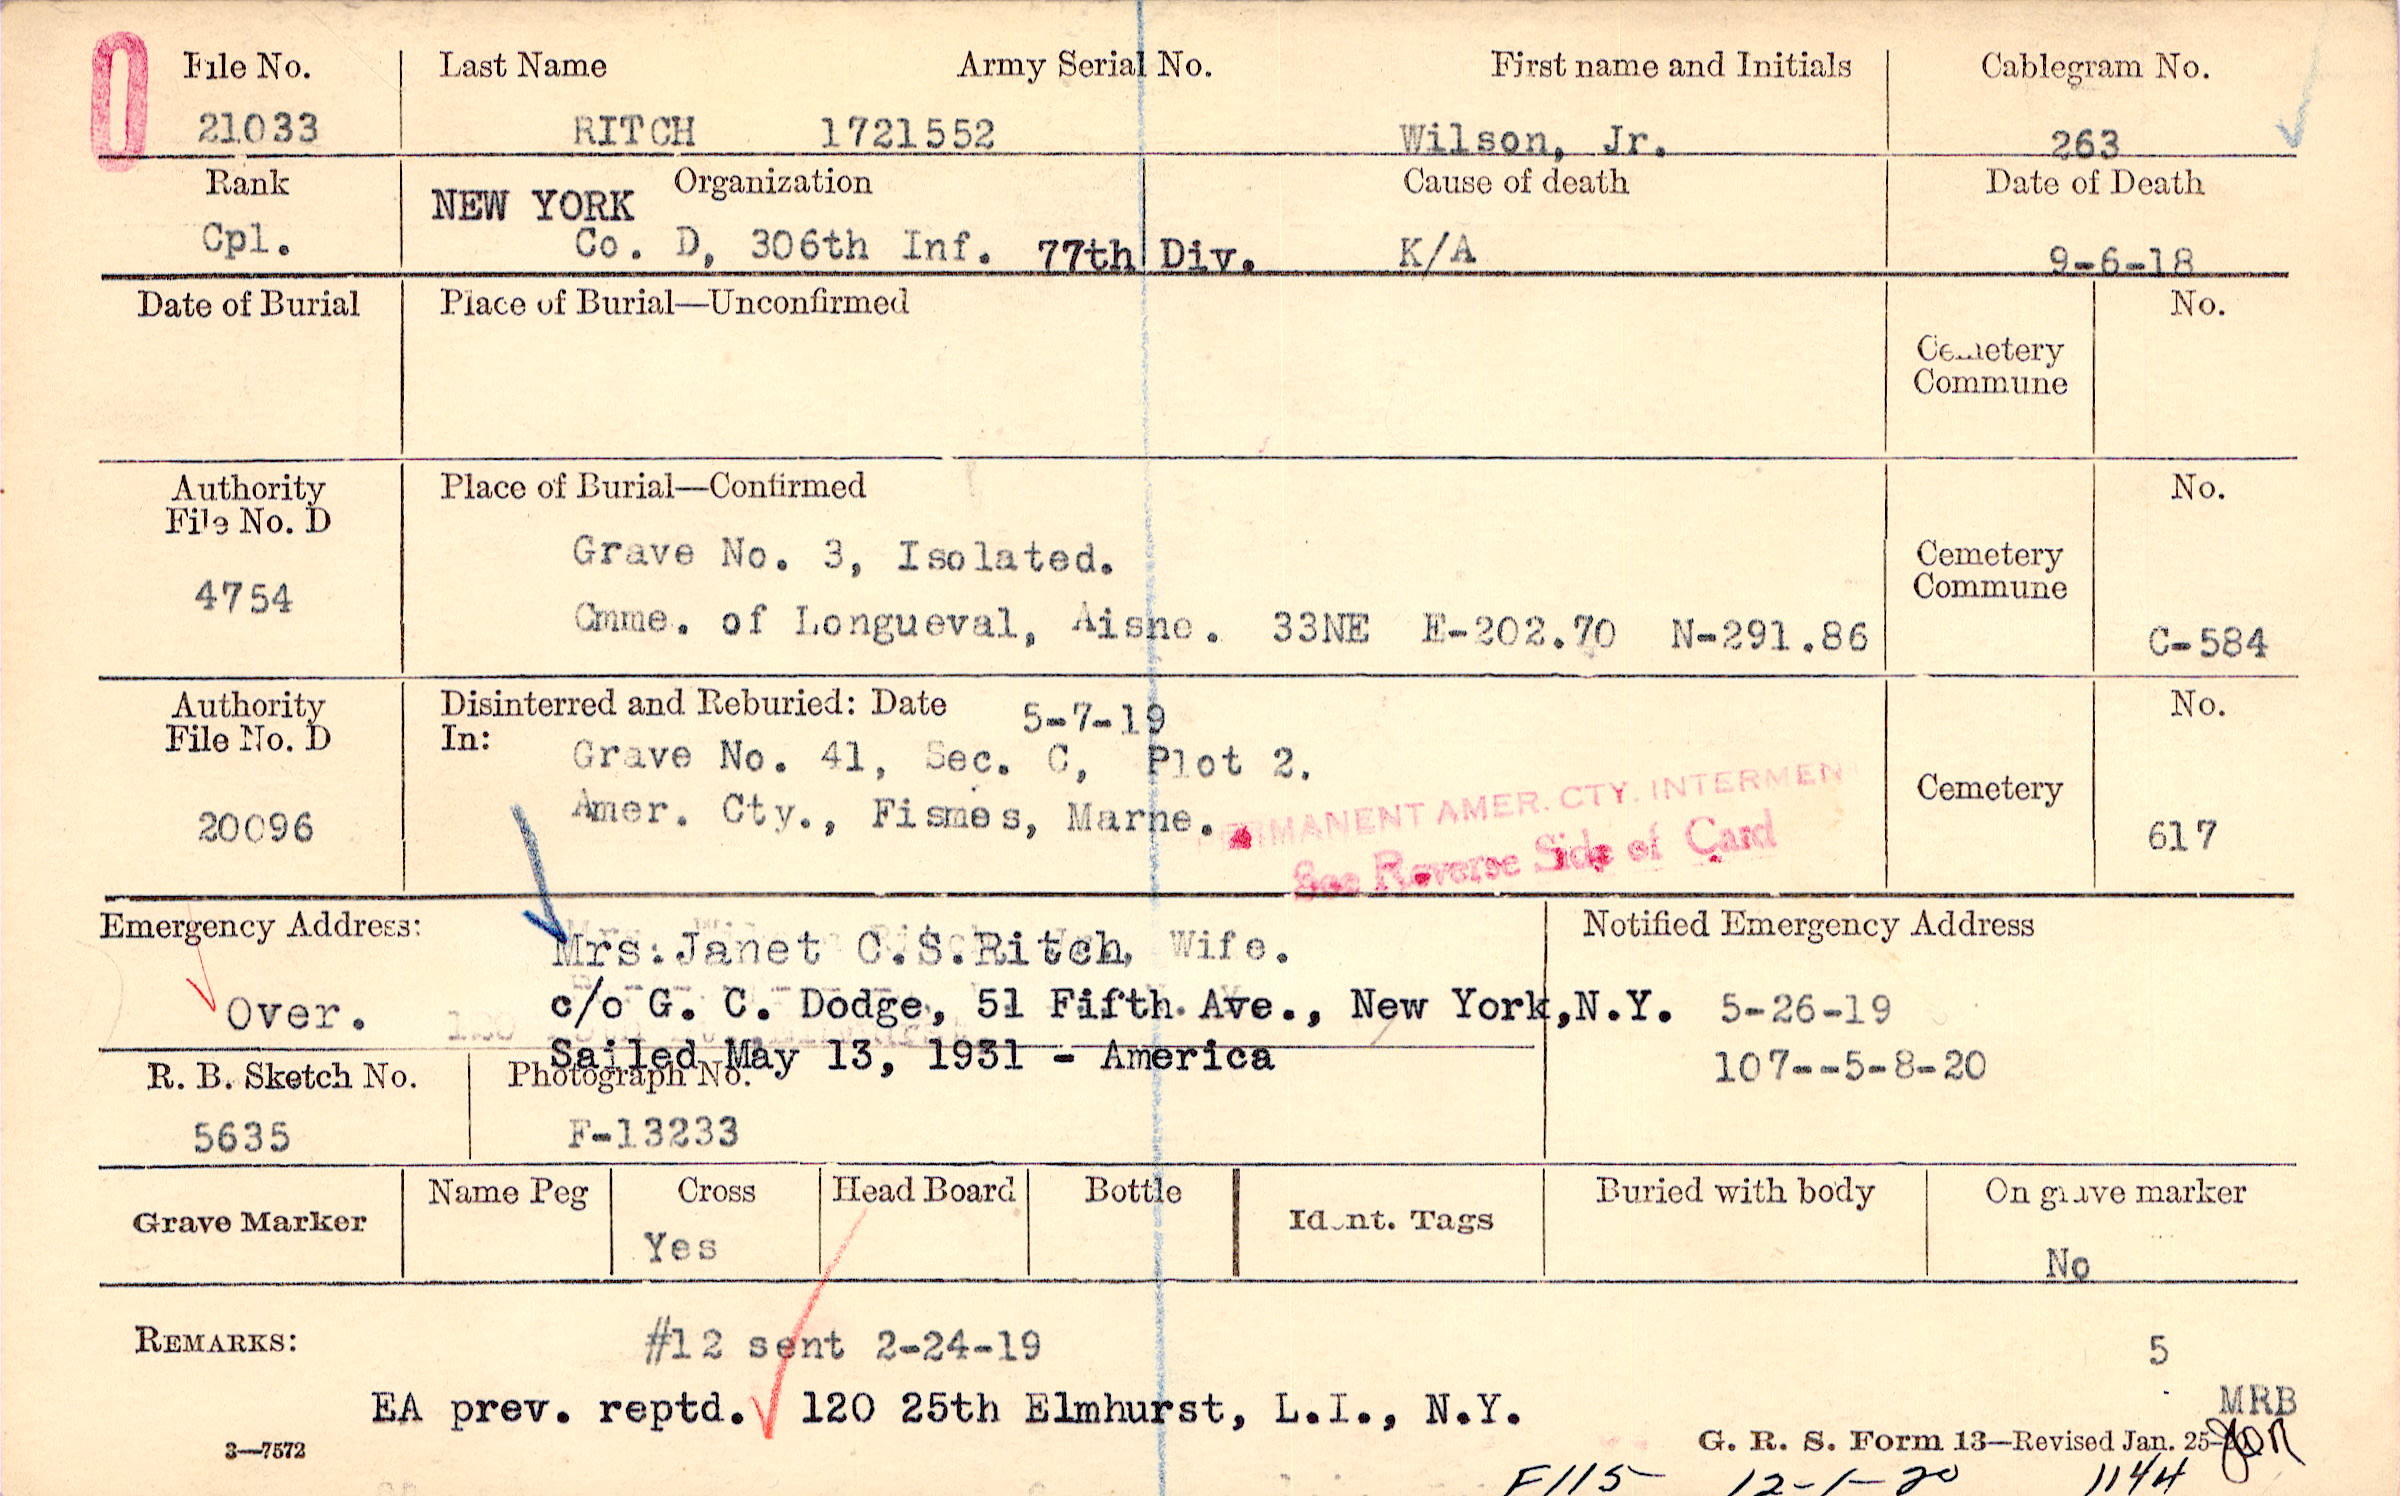 File No. Last Name Army Serial No. First name and Initials Cablegram No.
21033 RITCH 1721552 Wilson, Jr. 263
Rank Organization Cause of death Date of Death
NEW YORK
Cpl. Co. D, 306th Inf. 77th Div. K/A 9-6-18
Date of Burial Place of Burial—Unconfirmed No.
Cemetery
Commune
Authority Place of Burial—Confirmed No.
File No. D
Grave No. 3, Isolated. Cemetery
4754 Commune
Cmme. of Longueval, Aisne. 33NE E-202.70 N-291.86 C-584
Authority Disinterred and Reburied: Date 5-7-19 No.
File No. D In:
Grave No. 41, Sec. C, Plot 2.
Cemetery
20096 Amer. Cty., Fismes, Marne. 617
PERMANENT AMER. CTY. INTERMEN
See Reverse Side of Card
Emergency Address: Notified Emergency Address
Mrs. Janet C.S.Ritch, Wife.
Over. c/o G. C. Dodge, 51 Fifth Ave., New York, N.Y. 5-26-19
Sailed May 13, 1931 - America
107--5-8-20
R. B. Sketch No. Photograph No.
5635 F-13233
Grave Marker Name Peg Cross Head Board Bottle Ident. Tags Buried with body On grave marker
Yes No
REMARKS: #12 sent 2-24-19 5
EA prev. reptd. 120 25th Elmhurst, L.I., N.Y. MRB
3—7572 G. R. S. Form 13—Revised Jan. 25-
F115 12-1-20 1144